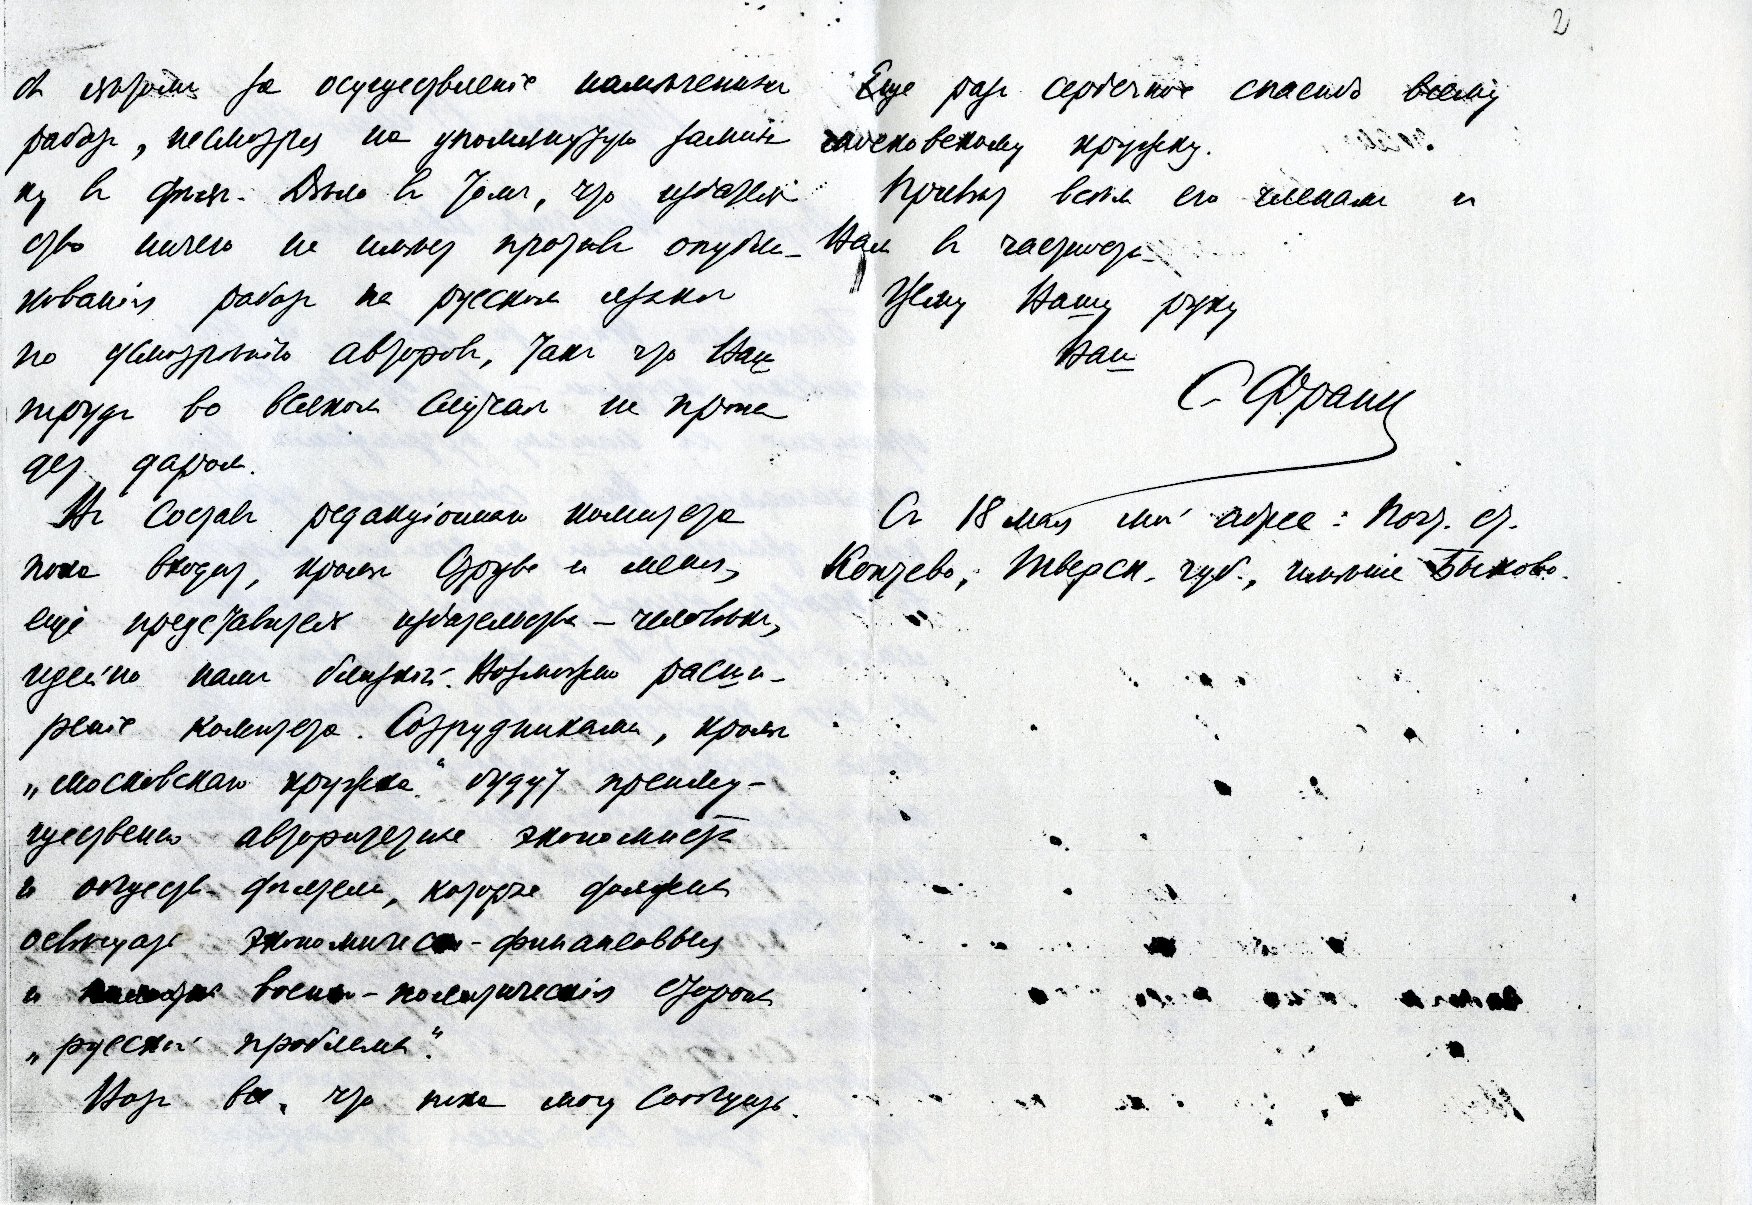 2
за осуществленіе намѣченных
работъ, несмотря на упомянутую замин
ку въ дѣлѣ. Дѣло въ томъ, что издатель
ство ничего не имѣетъ противъ опубли-
кованія работъ на русском языкѣ
по усмотрѣнію авторовъ, такъ что Ваш
трудъ во всяком случаѣ не пропа
детъ даром.
Въ составъ редакціоннаго комитета
пока входят, кромѣ Струве и меня,
еще представитель издательства – человѣкъ,
идейно намъ близкій. Возможно расши-
реніе комитета. Сотрудниками, кромѣ
„московскаго кружка“ будут преиму-
щественно авторитетные экономисты
и обществ. дѣятели, которые должны
освѣщать экономическо-финансовыя
и военно-политическія стороны
„русской проблемы“.
Вот все, что пока могу сообщить.
Еще разъ сердечное спасибо всему
московскому кружку.
Привѣт всѣмъ его членамъ и
Вам въ частности.
Жму Вашу руку
Ваш
С. Франк
Съ 18 мая мой адрес: Почт. ст.
Кончево, Тверск. губ., имѣніе Быково.